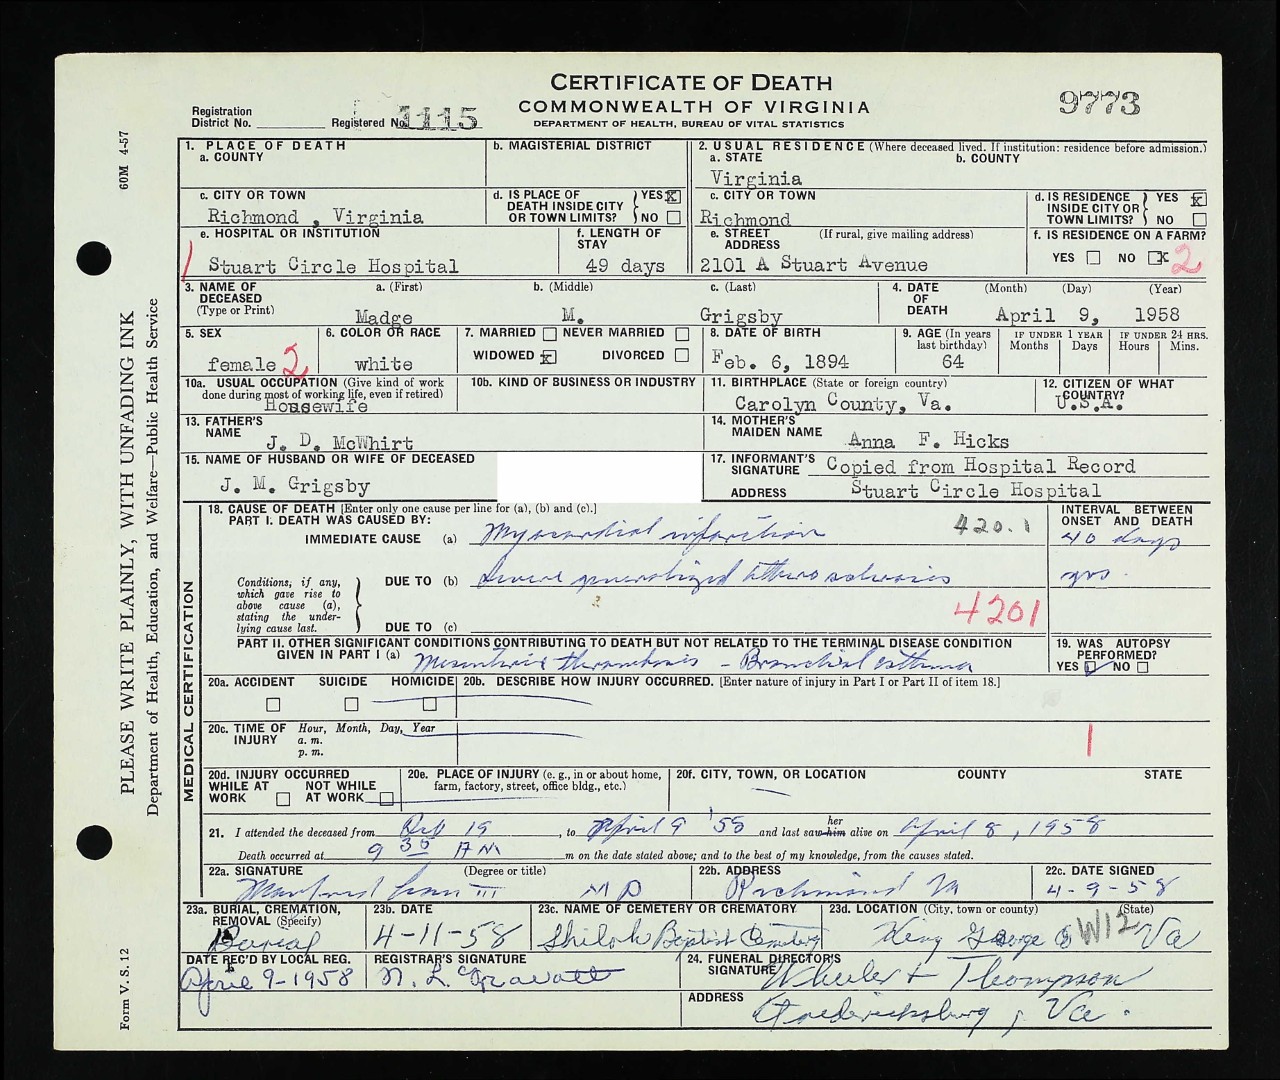 CERTIFICATE OF DEATH
COMMONWEALTH OF VIRGINIA
DEPARTMENT OF HEALTH, BUREAU OF VITAL STATISTICS
9773
Registration District No.
Registered No. 1115
60M 4-57
PLEASE WRITE PLAINLY, WITH UNFADING INK
Department of Health, Education, and Welfare—Public Health Service
Form V. S. 12
1. PLACE OF DEATH
a. COUNTY
b. MAGISTERIAL DISTRICT
2. USUAL RESIDENCE (Where deceased lived. If institution: residence before admission.)
a. STATE
b. COUNTY
Virginia
c. CITY OR TOWN
Richmond , Virginia
d. IS PLACE OF DEATH INSIDE CITY OR TOWN LIMITS?
YES x
NO
c. CITY OR TOWN
Richmond
d. IS RESIDENCE INSIDE CITY OR TOWN LIMITS?
YES x
NO
e. HOSPITAL OR INSTITUTION
Stuart Circle Hospital
f. LENGTH OF STAY
49 days
e. STREET ADDRESS
(If rural, give mailing address)
2101 A Stuart Avenue
f. IS RESIDENCE ON A FARM?
YES NO x 2
3. NAME OF DECEASED
(Type or Print)
a. (First)
Madge
b. (Middle)
M.
c. (Last)
Grigsby
4. DATE OF DEATH
(Month) (Day) (Year)
April 9, 1958
5. SEX
female 2
6. COLOR OR RACE
white
7. MARRIED NEVER MARRIED
WIDOWED x DIVORCED
8. DATE OF BIRTH
Feb. 6, 1894
9. AGE (In years last birthday)
64
IF UNDER 1 YEAR
Months Days
IF UNDER 24 HRS.
Hours Mins.
10a. USUAL OCCUPATION (Give kind of work done during most of working life, even if retired)
Housewife
10b. KIND OF BUSINESS OR INDUSTRY
11. BIRTHPLACE (State or foreign country)
Carolyn County, Va.
12. CITIZEN OF WHAT COUNTRY?
U.S.A.
13. FATHER'S NAME
J. D. McWhirt
14. MOTHER'S MAIDEN NAME
Anna F. Hicks
15. NAME OF HUSBAND OR WIFE OF DECEASED
J. M. Grigsby
17. INFORMANT'S SIGNATURE
Copied from Hospital Record
ADDRESS
Stuart Circle Hospital
MEDICAL CERTIFICATION
18. CAUSE OF DEATH [Enter only one cause per line for (a), (b) and (c).]
PART I. DEATH WAS CAUSED BY:
IMMEDIATE CAUSE (a) Myocardial infarction
420.1
INTERVAL BETWEEN ONSET AND DEATH
40 days
Conditions, if any, which gave rise to above cause (a), stating the underlying cause last.
DUE TO (b) Severe generalized atherosclerosis
yrs.
4201
DUE TO (c)
PART II. OTHER SIGNIFICANT CONDITIONS CONTRIBUTING TO DEATH BUT NOT RELATED TO THE TERMINAL DISEASE CONDITION
GIVEN IN PART I (a) Mesenteric thrombosis - Bronchial asthma
19. WAS AUTOPSY PERFORMED?
YES NO
20a. ACCIDENT SUICIDE HOMICIDE
20b. DESCRIBE HOW INJURY OCCURRED. [Enter nature of injury in Part I or Part II of item 18.]
20c. TIME OF INJURY
Hour, Month, Day, Year
a. m.
p. m.
20d. INJURY OCCURRED
WHILE AT WORK
NOT WHILE AT WORK
20e. PLACE OF INJURY (e. g., in or about home, farm, factory, street, office bldg., etc.)
20f. CITY, TOWN, OR LOCATION COUNTY STATE
21. I attended the deceased from 19 , to April 9 '58 and last saw him her alive on April 8, 1958
Death occurred at 9 30 AM m on the date stated above; and to the best of my knowledge, from the causes stated.
22a. SIGNATURE
(Degree or title)
III MD
22b. ADDRESS
Richmond
22c. DATE SIGNED
4-9-58
23a. BURIAL, CREMATION, REMOVAL (Specify)
Burial
23b. DATE
4-11-58
23c. NAME OF CEMETERY OR CREMATORY
Shiloh Baptist Cemetery
23d. LOCATION (City, town or county) (State)
King George Co W12 Va
DATE REC'D BY LOCAL REG.
April 9-1958
REGISTRAR'S SIGNATURE
24. FUNERAL DIRECTOR'S SIGNATURE
Wheeler & Thompson
ADDRESS
Fredericksburg, Va.